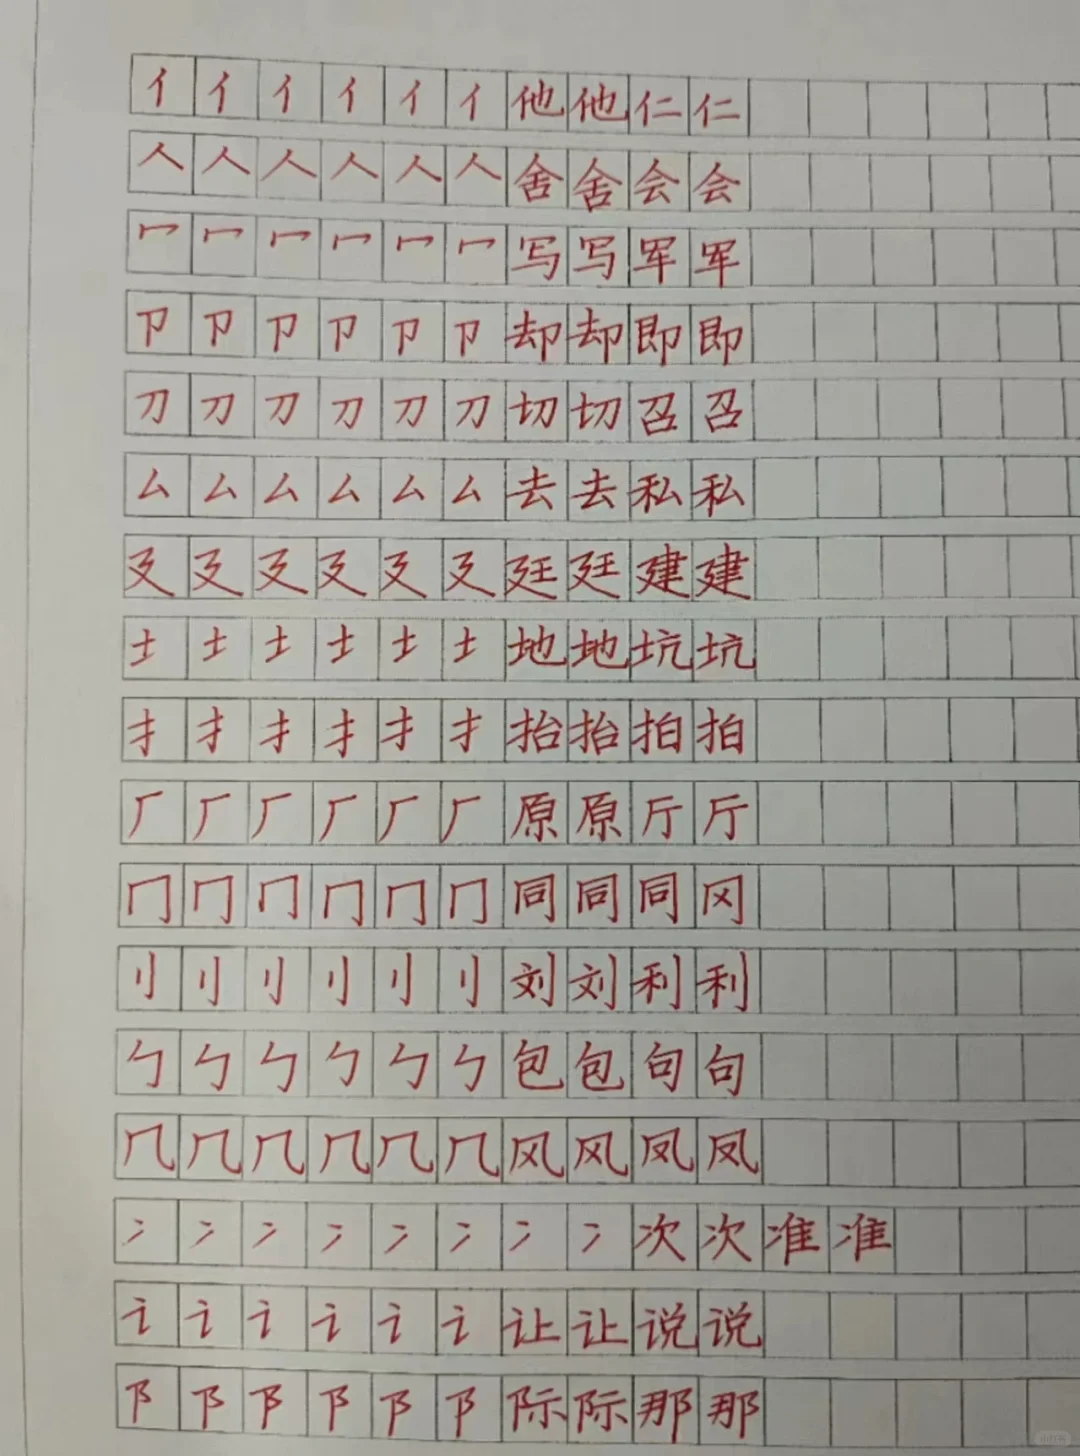 亻亻亻亻亻亻他他仁仁
人人人人人人舍舍会会
冖冖冖冖冖冖写写军军
卩卩卩卩卩卩却却即即
刀刀刀刀刀刀切切召召
厶厶厶厶厶厶去去私私
廴廴廴廴廴廴廷廷建建
土土土土土土地地坑坑
扌扌扌扌扌扌抬抬拍拍
厂厂厂厂厂厂原原厅厅
冂冂冂冂冂冂同同同冈
刂刂刂刂刂刂刘刘利利
勹勹勹勹勹勹包包句句
几几几几几几风风凤凤
冫冫冫冫冫冫冫冫次次准准
讠讠讠讠讠讠让让说说
阝阝阝阝阝阝际际那那